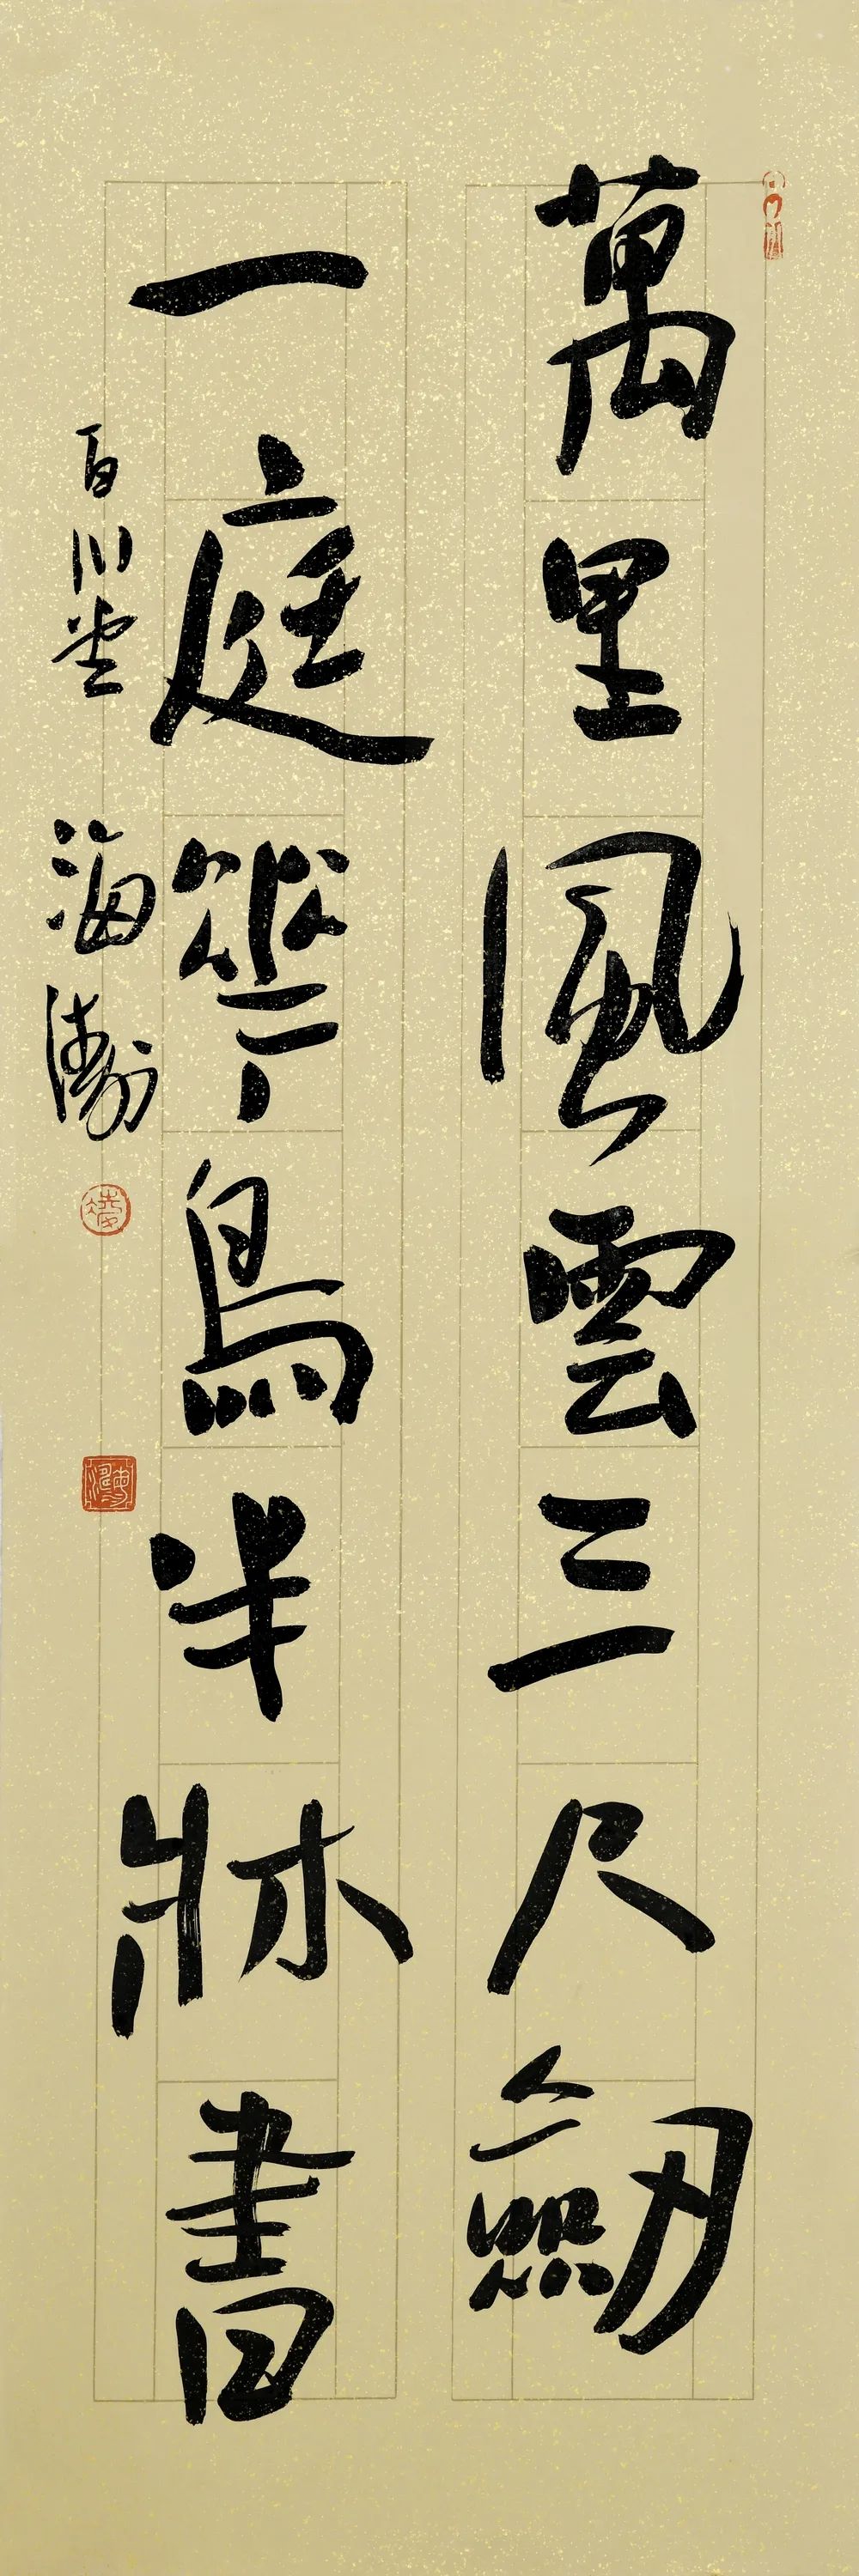 萬里風雲三尺劍
一庭花鳥半牀書
百川堂 海濤